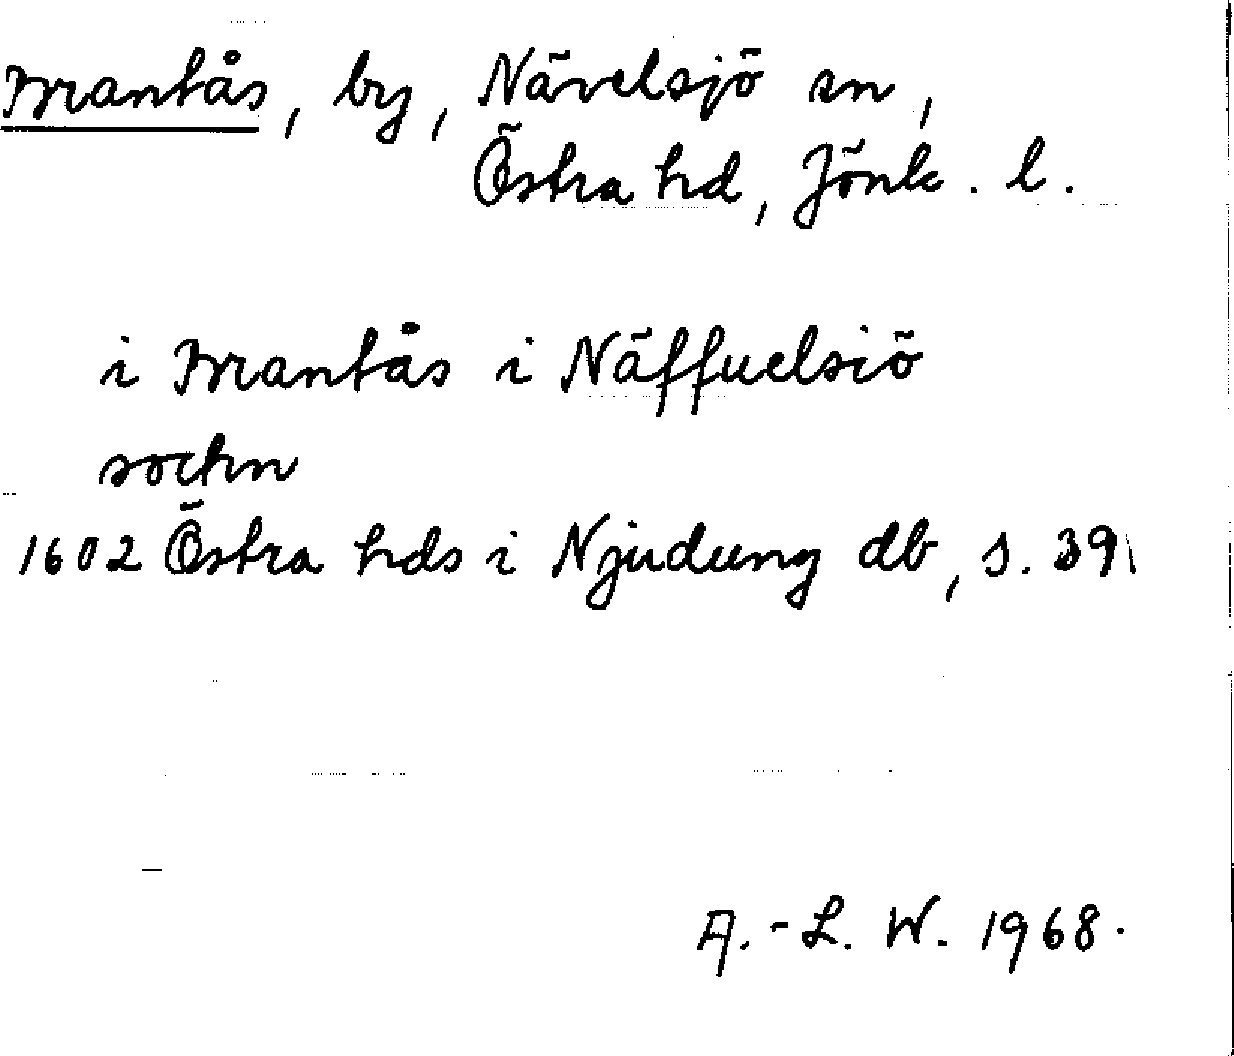 , by, Nävelsjö sn,
Östra hd, Jönk. l.
i Näffuelsiö
sockn
1602 Östra hds i Njudung db, s. 39
A.-L. W. 1968.